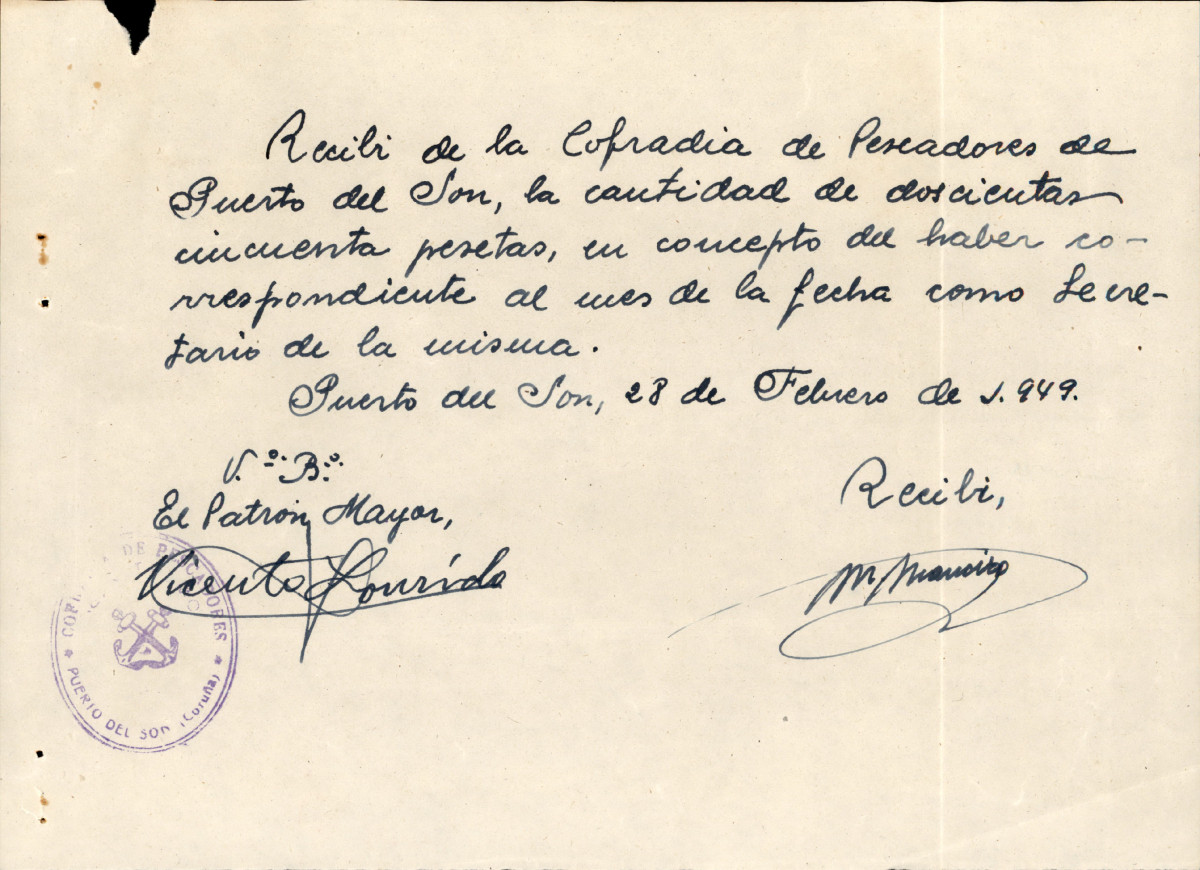 Recibi de la Cofradia de Pescadores de
Puerto del Son, la cantidad de doscientas
cincuenta pesetas, en concepto del haber co-
rrespondiente al mes de la fecha como Secre-
tario de la misma.
Puerto del Son, 28 de Febrero de 1.949.
V.º B.º
El Patrón Mayor,
Vicente
Recibi,
DE PESCADORES
PUERTO DEL SON (Coruña)